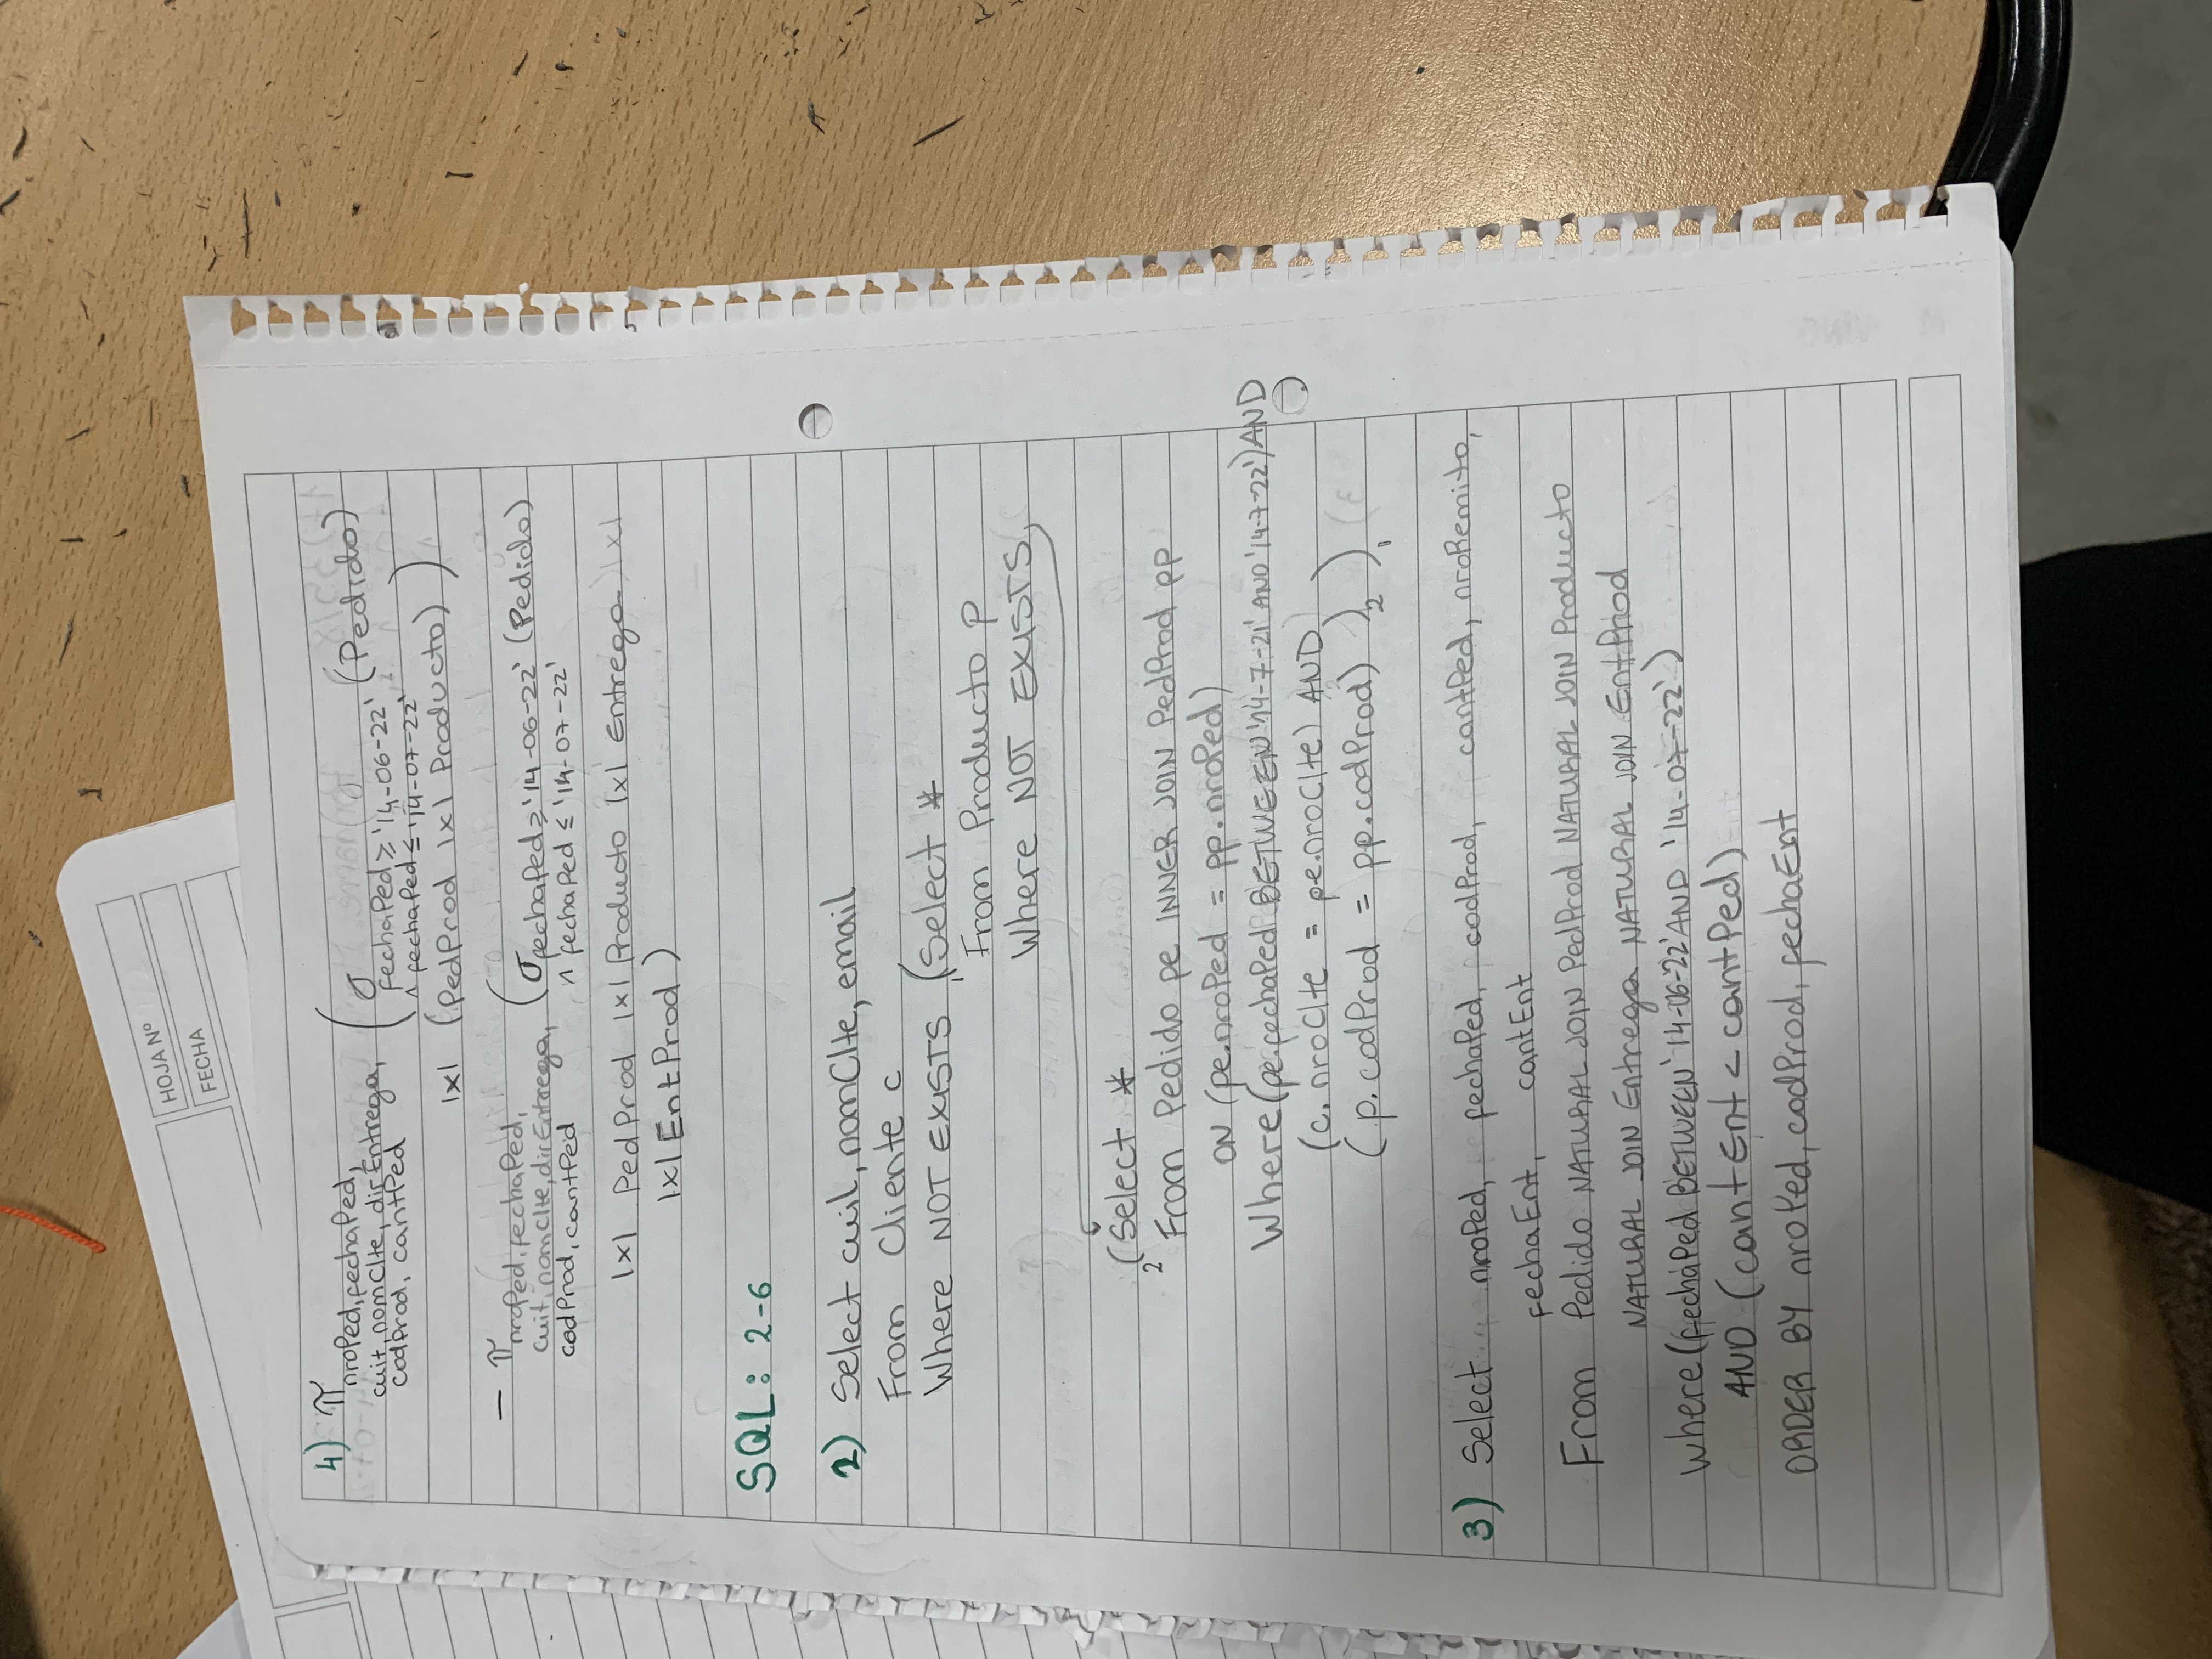 HOJA Nº
FECHA
4) π nroPed, fechaPed,
cuit, nomClte, dirEntrega,
codProd, cantPed
( σ fechaPed ≥ '14-06-22' (Pedido)
∧ fechaPed ≤ '14-07-22'
|x| (PedProd |x| Producto) )
− π nroPed, fechaPed,
cuit, nomClte, dirEntrega,
codProd, cantPed
( σ fechaPed ≥ '14-06-22' (Pedido)
∧ fechaPed ≤ '14-07-22'
|x| PedProd |x| Producto |x| Entrega |x|
|x| EntProd )
SQL: 2-6
2) Select cuil, nomClte, email
From Cliente c
Where NOT EXISTS (1 Select *
From Producto p
Where NOT EXISTS
(2 Select *
From Pedido pe INNER JOIN PedProd pp
ON (pe.nroPed = pp.nroPed)
Where (pe.fechaPed BETWEEN '14-7-21' AND '14-7-22') AND
(c.nroClte = pe.nroClte) AND
(p.codProd = pp.codProd) )2 )1
3) Select nroPed, fechaPed, codProd, cantPed, nroRemito,
fechaEnt, cantEnt
From Pedido NATURAL JOIN PedProd NATURAL JOIN Producto
NATURAL JOIN Entrega NATURAL JOIN EntProd
Where (fechaPed BETWEEN '14-06-22' AND '14-07-22')
AND (cantEnt < cantPed)
ORDER BY nroPed, codProd, fechaEnt